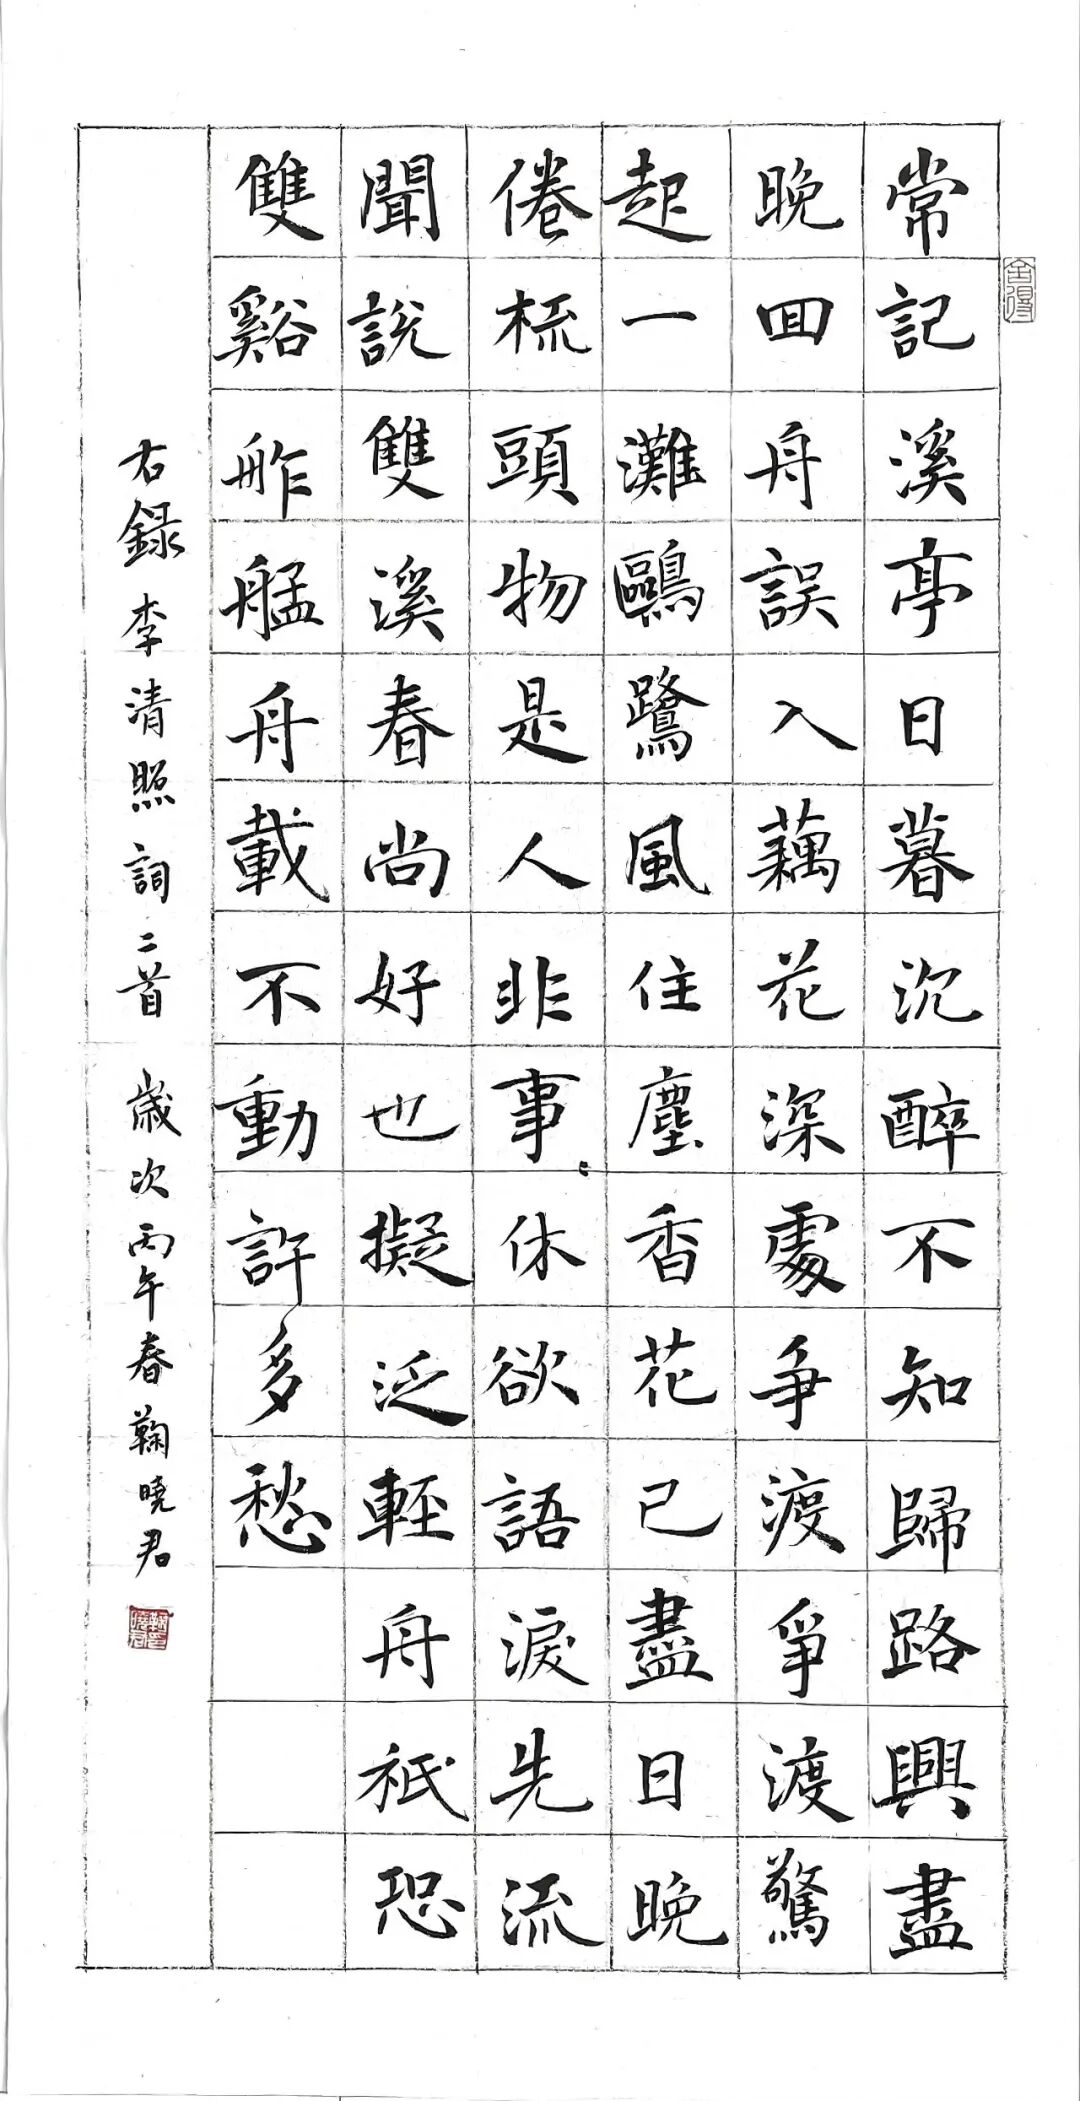 常記溪亭日暮沉醉不知歸路興盡
晚回舟誤入藕花深處爭渡爭渡驚
起一灘鷗鷺風住塵香花已盡日晚
倦梳頭物是人非事休欲語淚先流
聞說雙溪春尚好也擬泛輕舟衹恐
雙谿舴艋舟載不動許多愁
右録李清照詞二首 歲次丙午春鞠曉君
舍得
鞠曉君印